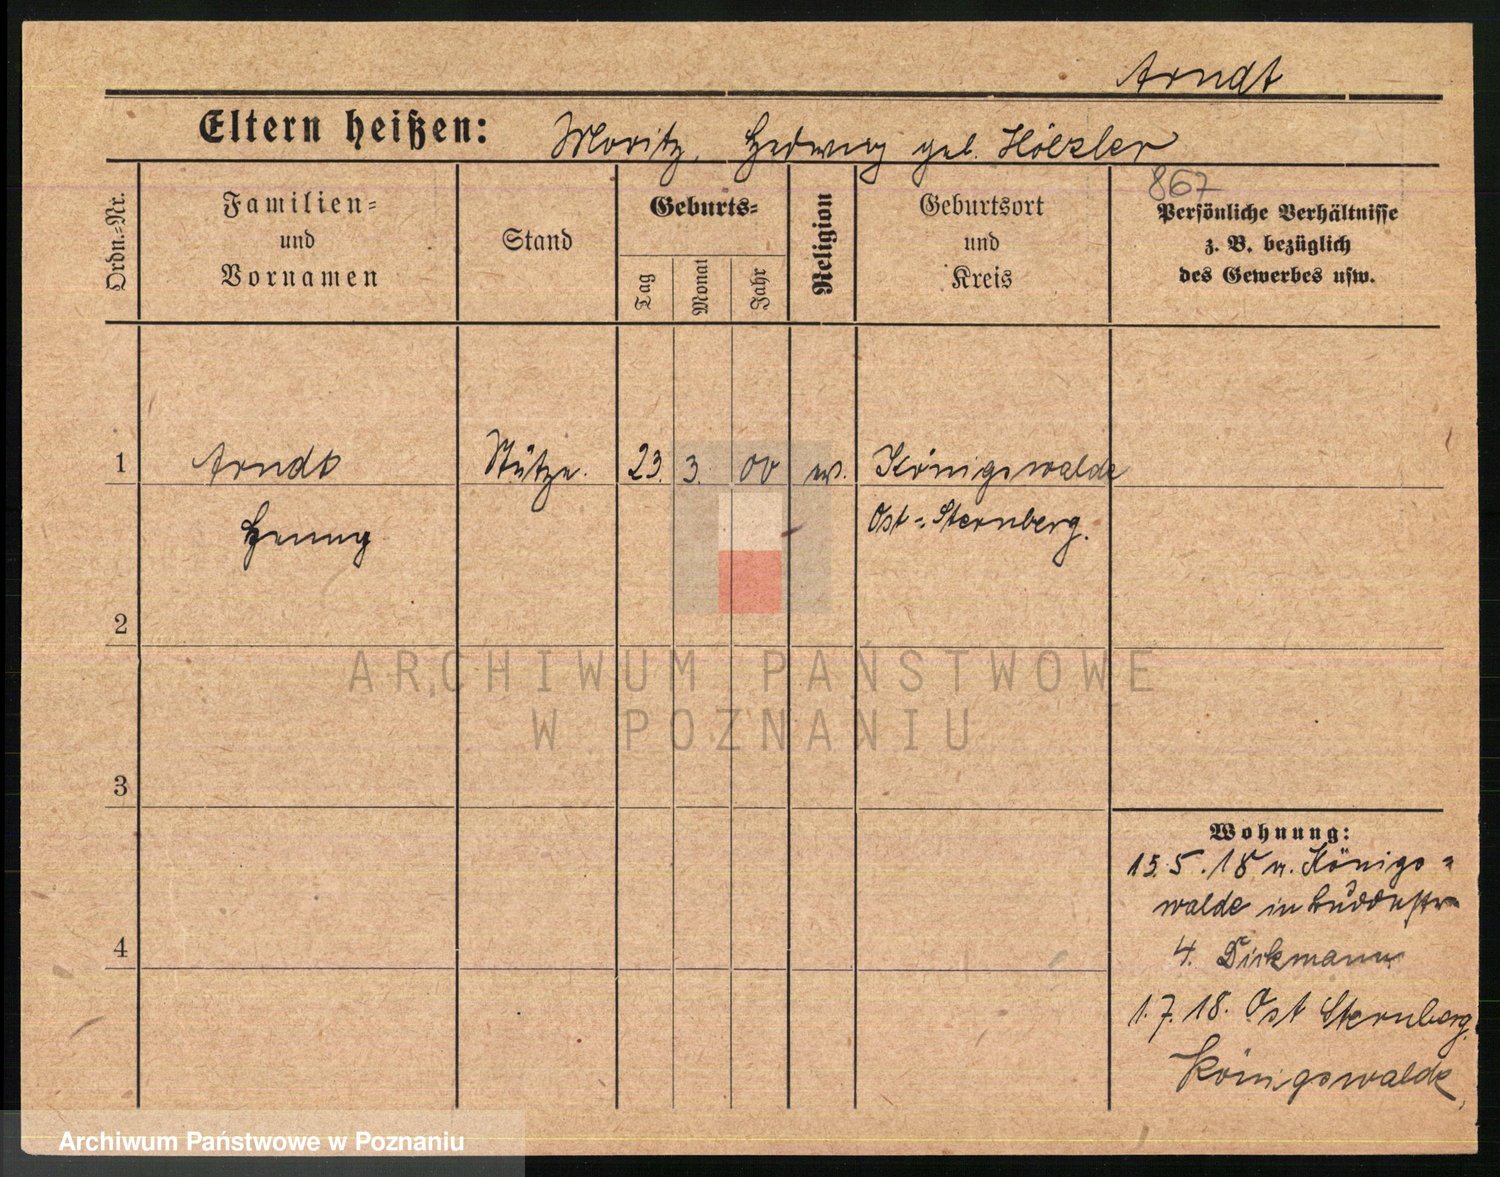 Arndt
Eltern heißen: Moritz, Hedwig geb. Hölzler
867
Ordn.-Nr.
Familien-
und
Vornamen
Stand
Geburts-
Tag
Monat
Jahr
Religion
Geburtsort
und
Kreis
Persönliche Verhältnisse
z. B. bezüglich
des Gewerbes usw.
1 Arndt Stütze. 23. 3. 00 ev. Königswalde
Henny Ost-Sternberg.
2
ARCHIWUM PAŃSTWOWE
W POZNANIU
3
Wohnung:
15.5.18 v. Königs-
walde in
4
4. Dirkmann
1.7.18. Ost Sternberg,
Königswalde
Archiwum Państwowe w Poznaniu